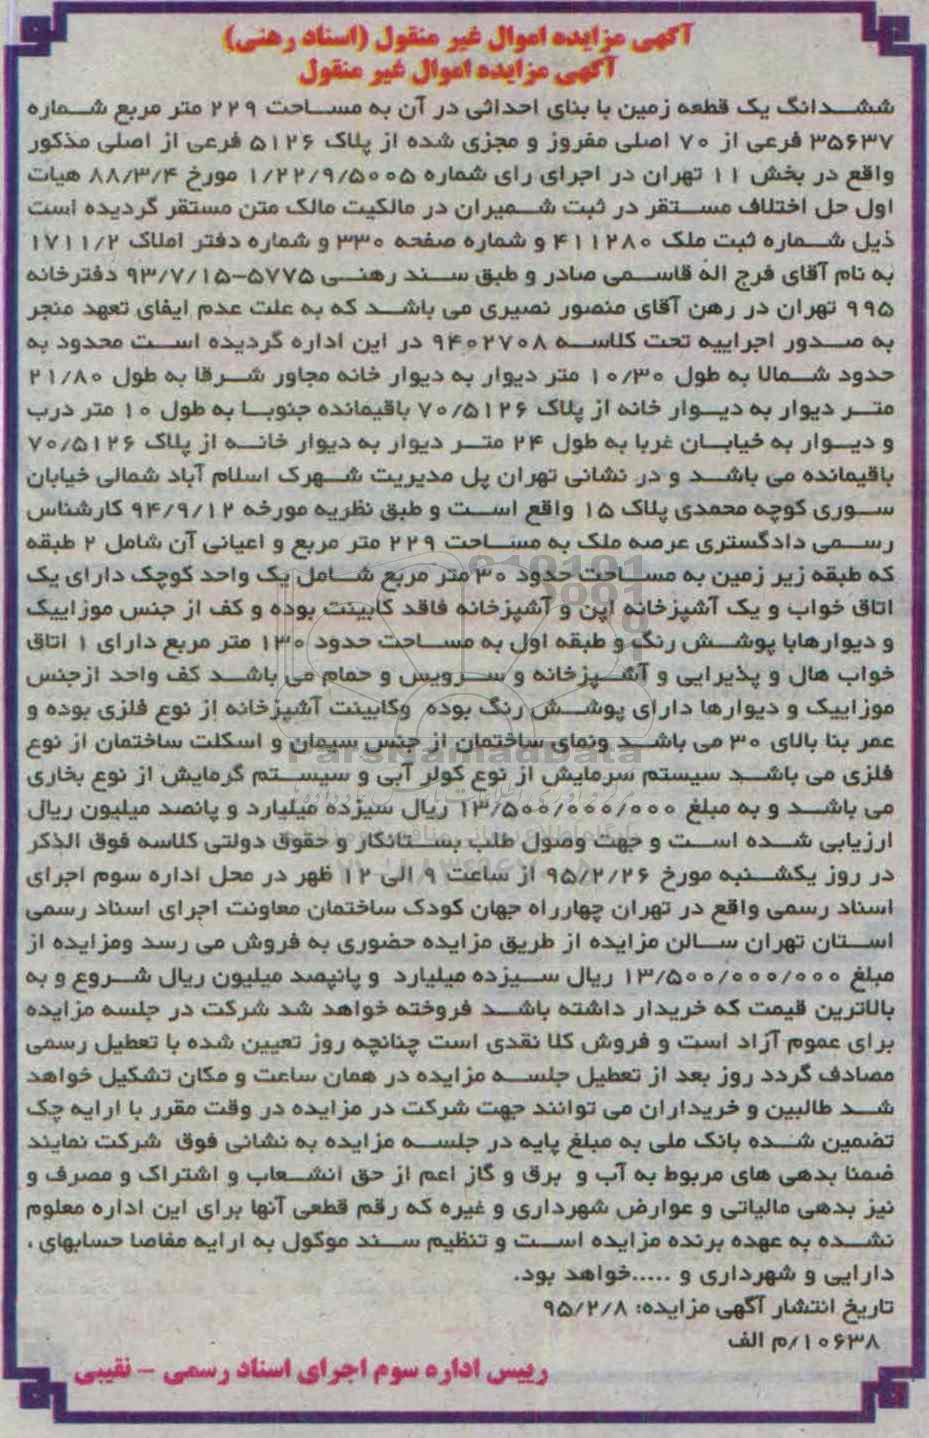 آگهی مزایده اموال غیر منقول (اسناد رهنی)
آگهی مزایده اموال غیر منقول
ششدانگ یک قطعه زمین با بنای احداثی در آن به مساحت ۲۲۹ متر مربع شماره
۳۵۶۳۷ فرعی از ۷۰ اصلی مفروز و مجزی شده از پلاک ۵۱۲۶ فرعی از اصلی مذکور
واقع در بخش ۱۱ تهران در اجرای رای شماره ۱/۲۲/۹/۵۰۰۵ مورخ ۸۸/۳/۴ هیات
اول حل اختلاف مستقر در ثبت شمیران در مالکیت مالک متن مستقر گردیده است
ذیل شماره ثبت ملک ۴۱۱۲۸۰ و شماره صفحه ۳۳۰ و شماره دفتر املاک ۱۷۱۱/۲
به نام آقای فرج اله قاسمی صادر و طبق سند رهنی ۵۷۷۵-۹۳/۷/۱۵ دفترخانه
۹۹۵ تهران در رهن آقای منصور نصیری می باشد که به علت عدم ایفای تعهد منجر
به صدور اجراییه تحت کلاسه ۹۴۰۲۷۰۸ در این اداره گردیده است محدود به
حدود شمالا به طول ۱۰/۳۰ متر دیوار به دیوار خانه مجاور شرقا به طول ۲۱/۸۰
متر دیوار به دیوار خانه از پلاک ۷۰/۵۱۲۶ باقیمانده جنوبا به طول ۱۰ متر درب
و دیوار به خیابان غربا به طول ۲۴ متر دیوار به دیوار خانه از پلاک ۷۰/۵۱۲۶
باقیمانده می باشد و در نشانی تهران پل مدیریت شهرک اسلام آباد شمالی خیابان
سوری کوچه محمدی پلاک ۱۵ واقع است و طبق نظریه مورخه ۹۴/۹/۱۲ کارشناس
رسمی دادگستری عرصه ملک به مساحت ۲۲۹ متر مربع و اعیانی آن شامل ۲ طبقه
که طبقه زیر زمین به مساحت حدود ۳۰ متر مربع شامل یک واحد کوچک دارای یک
اتاق خواب و یک آشپزخانه اپن و آشپزخانه فاقد کابینت بوده و کف از جنس موزاییک
و دیوارهابا پوشش رنگ و طبقه اول به مساحت حدود ۱۳۰ متر مربع دارای ۱ اتاق
خواب هال و پذیرایی و آشپزخانه و سرویس و حمام می باشد کف واحد ازجنس
موزاییک و دیوارها دارای پوشش رنگ بوده وکابینت آشپزخانه از نوع فلزی بوده و
عمر بنا بالای ۳۰ می باشد ونمای ساختمان از جنس سیمان و اسکلت ساختمان از نوع
فلزی می باشد سیستم سرمایش از نوع کولر آبی و سیستم گرمایش از نوع بخاری
می باشد و به مبلغ ۱۳/۵۰۰/۰۰۰/۰۰۰ ریال سیزده میلیارد و پانصد میلیون ریال
ارزیابی شده است و جهت وصول طلب بستانکار و حقوق دولتی کلاسه فوق الذکر
در روز یکشنبه مورخ ۹۵/۲/۲۶ از ساعت ۹ الی ۱۲ ظهر در محل اداره سوم اجرای
اسناد رسمی واقع در تهران چهارراه جهان کودک ساختمان معاونت اجرای اسناد رسمی
استان تهران سالن مزایده از طریق مزایده حضوری به فروش می رسد ومزایده از
مبلغ ۱۳/۵۰۰/۰۰۰/۰۰۰ ریال سیزده میلیارد و پانپصد میلیون ریال شروع و به
بالاترین قیمت که خریدار داشته باشد فروخته خواهد شد شرکت در جلسه مزایده
برای عموم آزاد است و فروش کلا نقدی است چنانچه روز تعیین شده با تعطیل رسمی
مصادف گردد روز بعد از تعطیل جلسه مزایده در همان ساعت و مکان تشکیل خواهد
شد طالبین و خریداران می توانند جهت شرکت در مزایده در وقت مقرر با ارایه چک
تضمین شده بانک ملی به مبلغ پایه در جلسه مزایده به نشانی فوق شرکت نمایند
ضمنا بدهی های مربوط به آب و برق و گاز اعم از حق انشعاب و اشتراک و مصرف و
نیز بدهی مالیاتی و عوارض شهرداری و غیره که رقم قطعی آنها برای این اداره معلوم
نشده به عهده برنده مزایده است و تنظیم سند موکول به ارایه مفاصا حسابهای ،
دارایی و شهرداری و .....خواهد بود.
تاریخ انتشار آگهی مزایده: ۹۵/۲/۸
۱۰۶۳۸/م الف
رییس اداره سوم اجرای اسناد رسمی - نقیبی
ParsNamadData